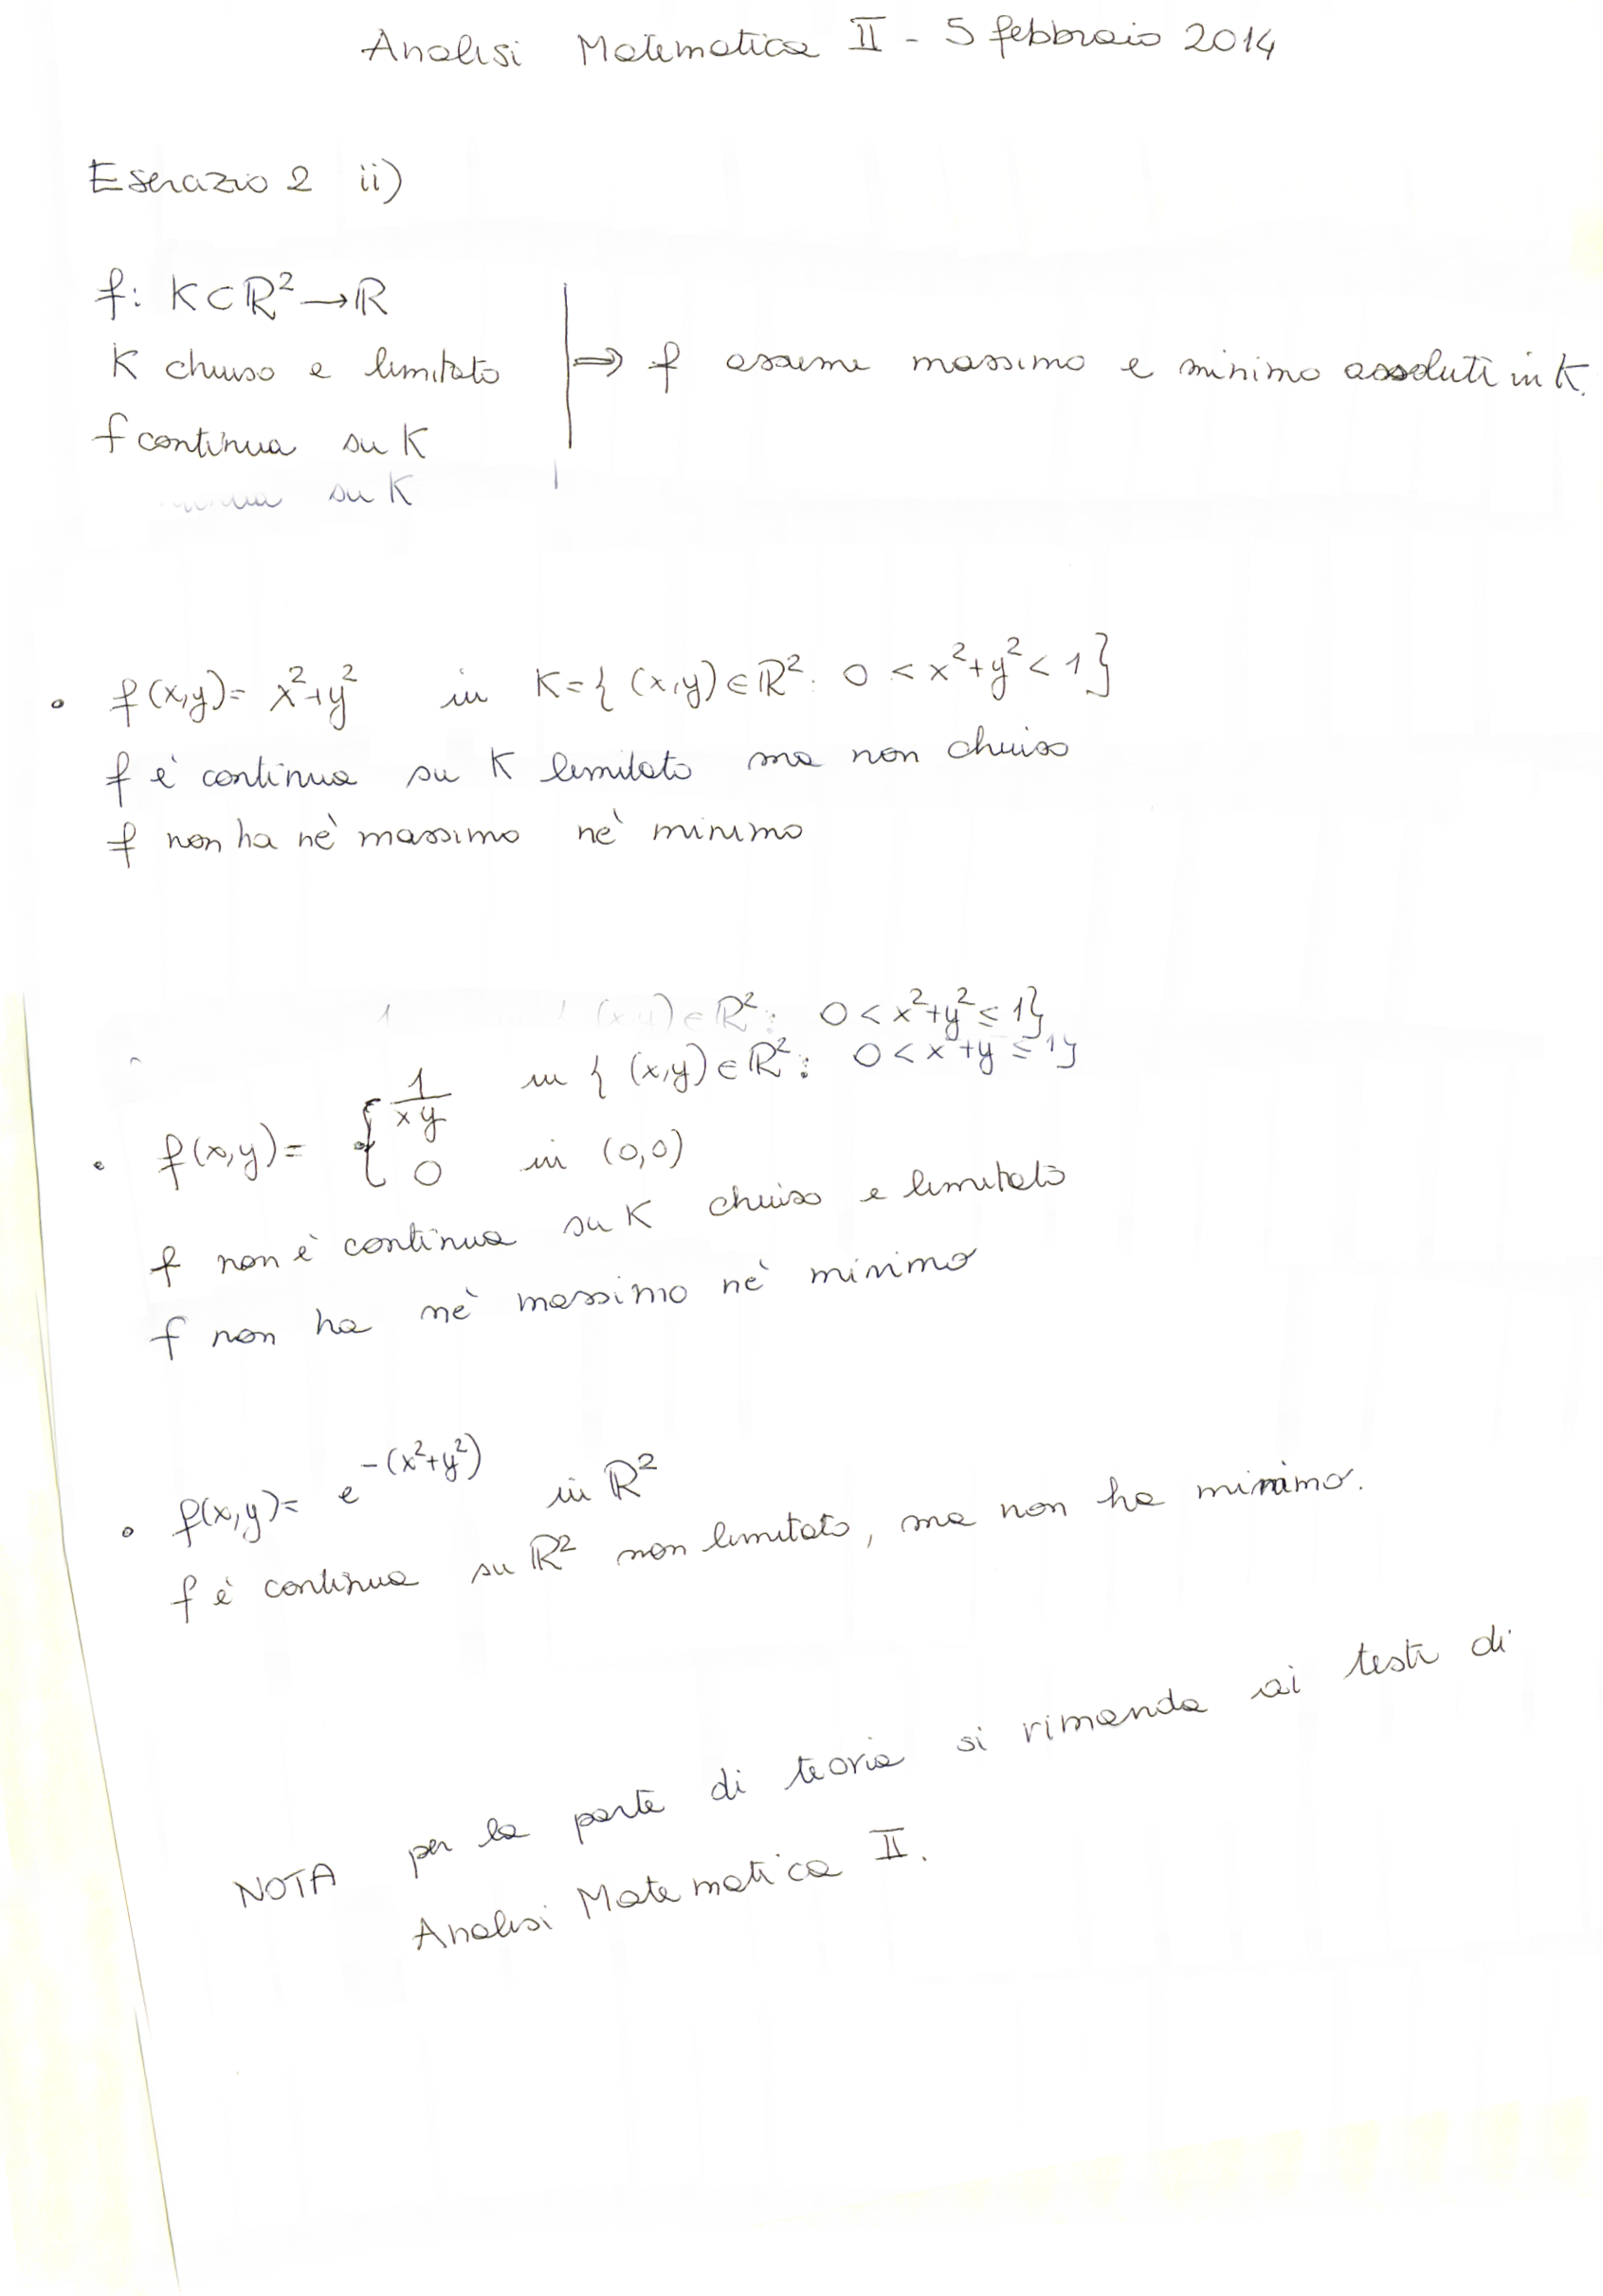 Analisi Matematica II - 5 febbraio 2014
Esercizio 2 ii)
f: K⊂ℝ²→ℝ
K chiuso e limitato ⇒ f assume massimo e minimo assoluti in K.
f continua su K
su K
• f(x,y)= x²+y² in K={ (x,y)∈ℝ²: 0 < x²+y² < 1}
f è continua su K limitato ma non chiuso
f non ha nè massimo nè minimo
1 { (x,y)∈ℝ²: 0 < x²+y² ≤ 1}
1/xy in { (x,y)∈ℝ²: 0 < x²+y² ≤ 1}
• f(x,y)= {
0 in (0,0)
f non è continua su K chiuso e limitato
f non ha nè massimo nè minimo
• f(x,y)= e^-(x²+y²) in ℝ²
f è continua su ℝ² non limitato, ma non ha minimo.
NOTA per la parte di teoria si rimanda ai testi di
Analisi Matematica II.